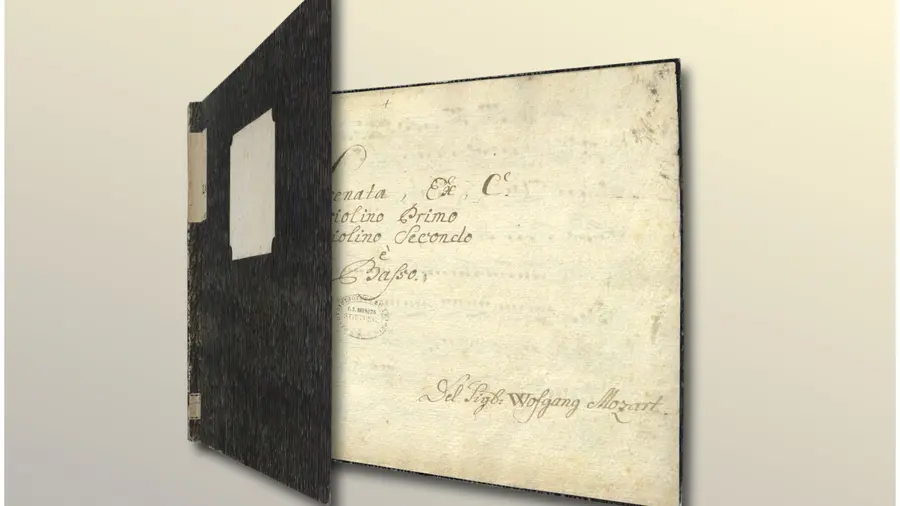 renata, Ex, C.e
iolino Primo
iolino Secondo
è
Basso.,
Del Sigb: Wofgang Mozart.